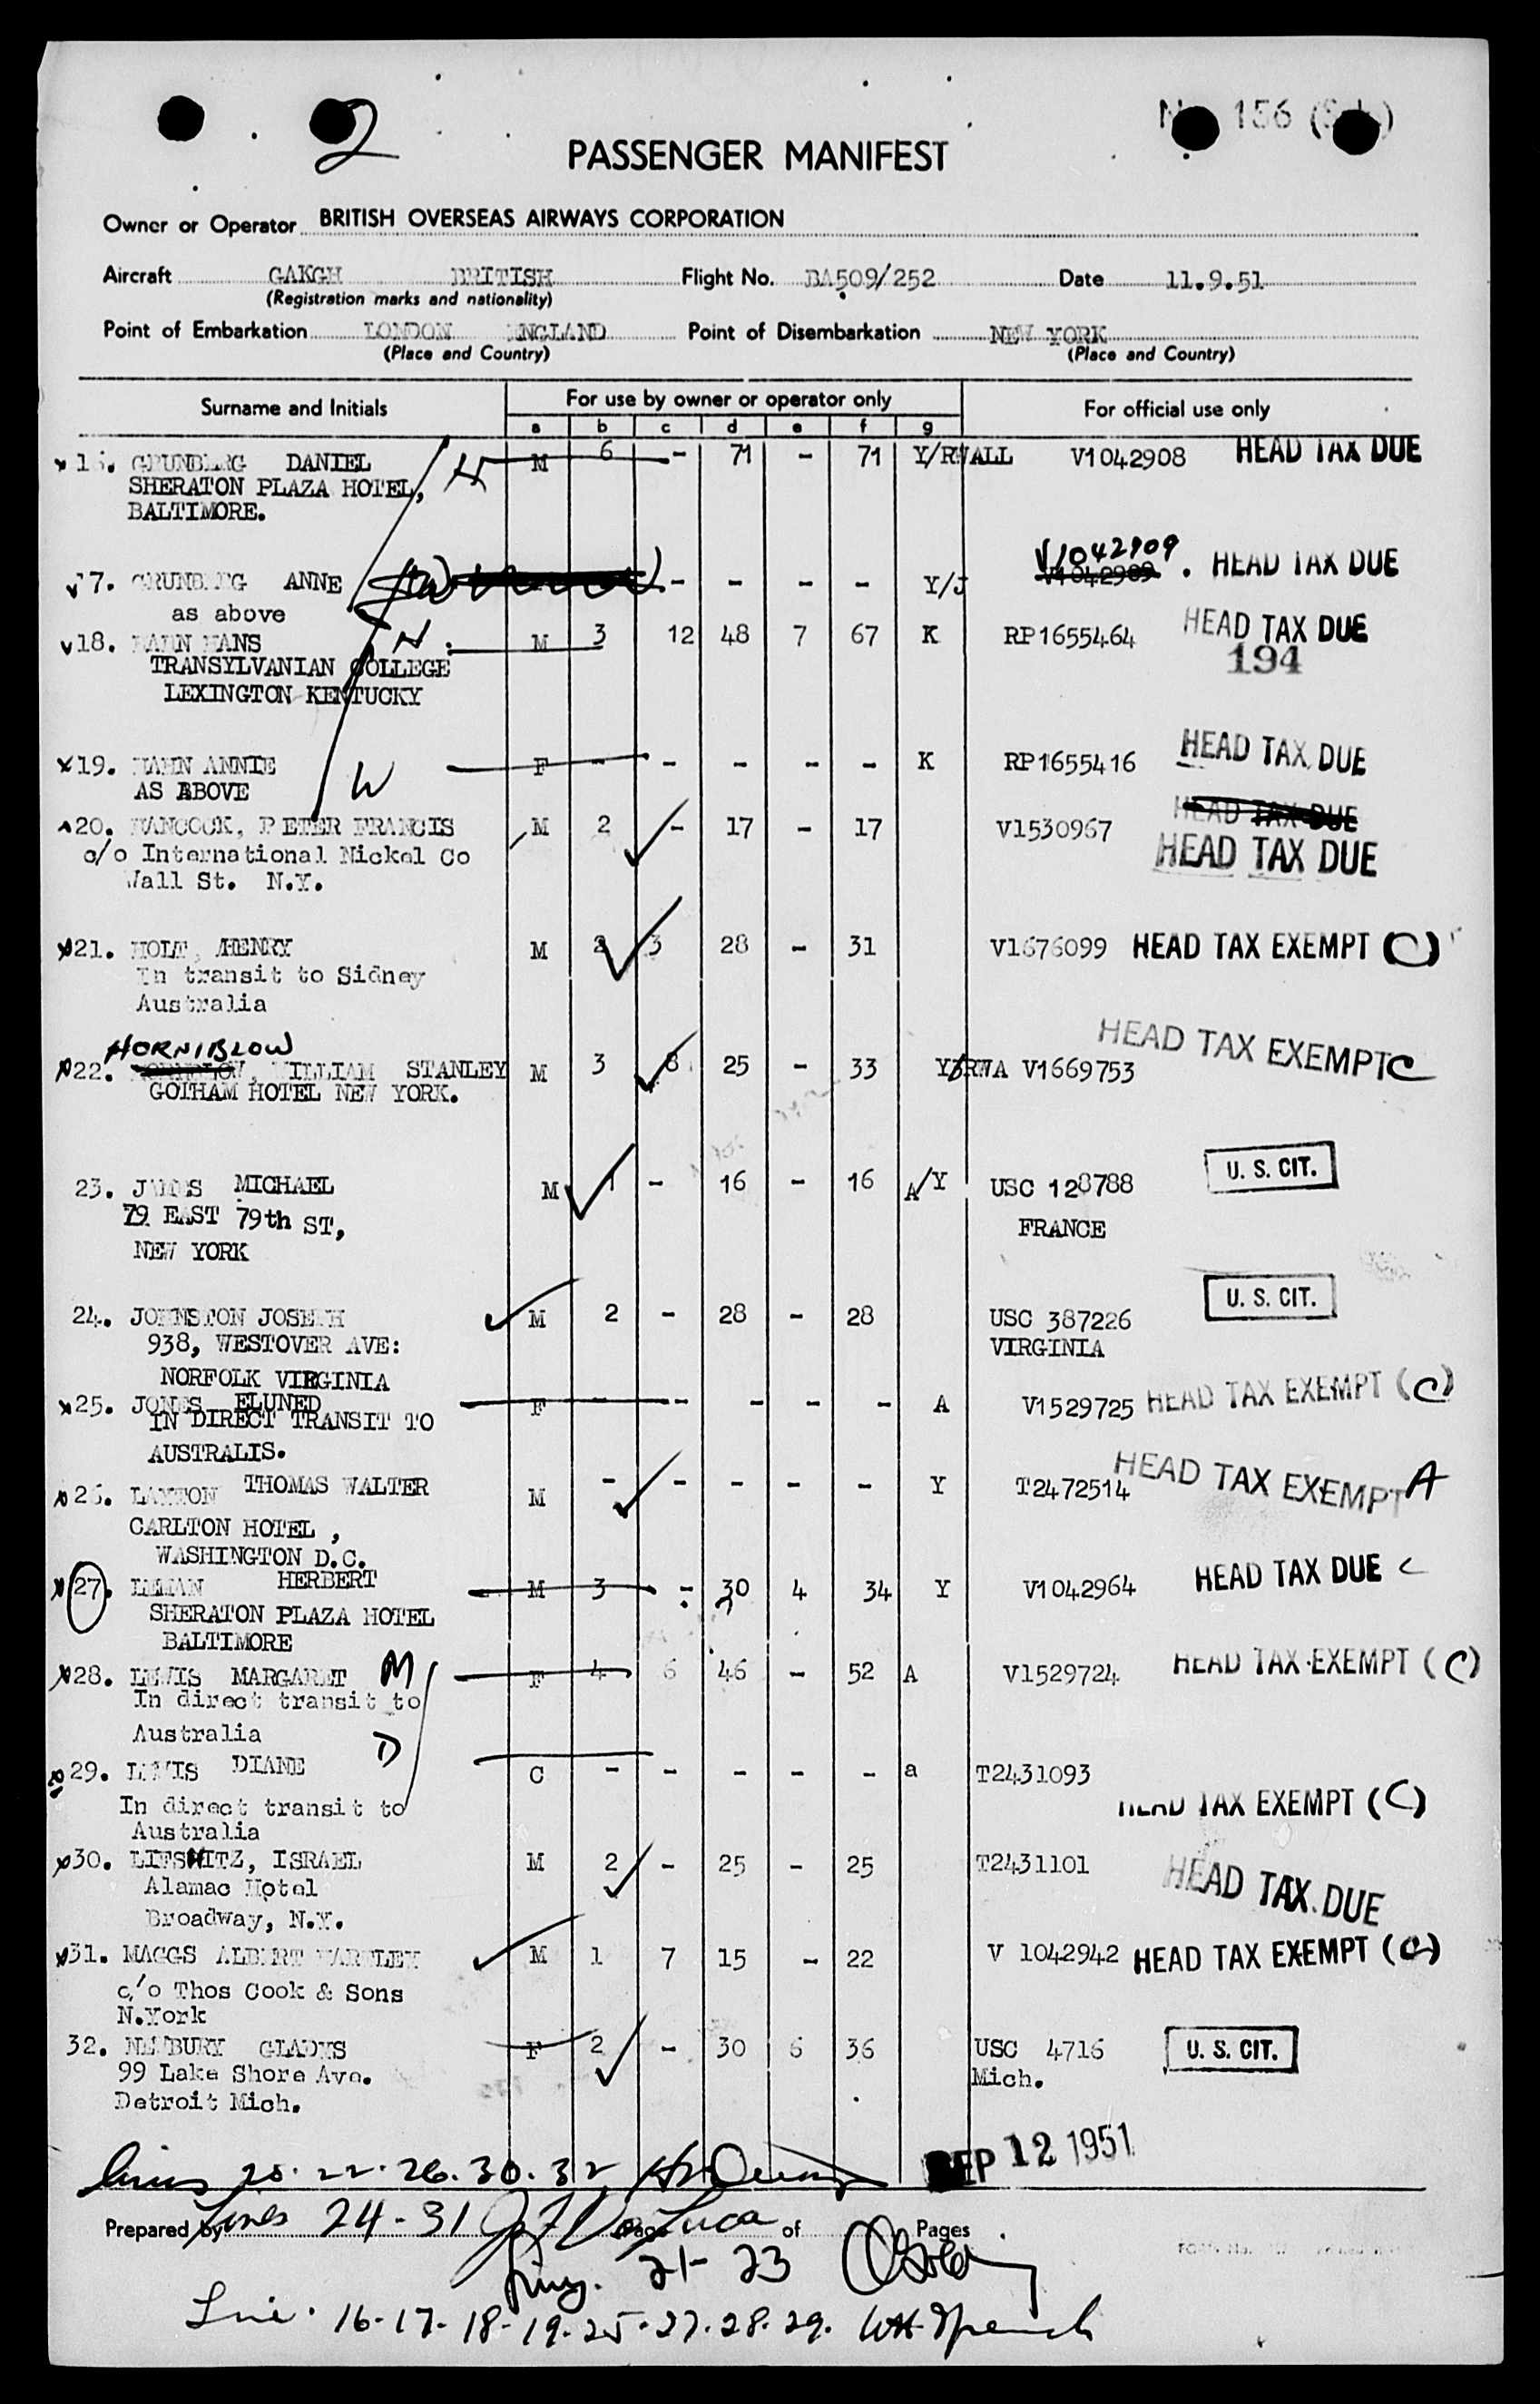 2
156
PASSENGER MANIFEST
Owner or Operator BRITISH OVERSEAS AIRWAYS CORPORATION
Aircraft GAKGH BRITISH Flight No. BA509/252 Date 11.9.51
(Registration marks and nationality)
Point of Embarkation LONDON ENGLAND Point of Disembarkation NEW YORK
(Place and Country) (Place and Country)
Surname and Initials For use by owner or operator only For official use only
a b c d e f g
16. GRUNBERG DANIEL H M 6 - 71 - 71 Y/RWALL V1042908 HEAD TAX DUE
SHERATON PLAZA HOTEL,
BALTIMORE.
V1042909
17. GRUNBERG ANNE (W) - - - - Y/J V1042909 . HEAD TAX DUE
as above
18. HAHN HANS H M 3 12 48 7 67 K RP1655464 HEAD TAX DUE
TRANSYLVANIAN COLLEGE 194
LEXINGTON KENTUCKY
19. HAHN ANNIE W F - - - - - K RP1655416 HEAD TAX DUE
AS ABOVE
HEAD TAX DUE
20. HANCOCK, PETER FRANCIS M 2 - 17 - 17 V1530967 HEAD TAX DUE
c/o International Nickel Co
Wall St. N.Y.
21. HOLT, HENRY M 2 3 28 - 31 V1676099 HEAD TAX EXEMPT (C)
In transit to Sidney
Australia
HORNIBLOW
22. WILLIAM STANLEY M 3 8 25 - 33 V1669753 HEAD TAX EXEMPT C
GOTHAM HOTEL NEW YORK.
23. JAMES MICHAEL M 1 - 16 - 16 A/Y USC 128788 U. S. CIT.
79 EAST 79th ST, FRANCE
NEW YORK
24. JOHNSTON JOSEPH M 2 - 28 - 28 USC 387226 U. S. CIT.
938, WESTOVER AVE: VIRGINIA
NORFOLK VIRGINIA
25. JONES ELUNED F - - - - - A V1529725 HEAD TAX EXEMPT (C)
IN DIRECT TRANSIT TO
AUSTRALIS.
26. LAYTON THOMAS WALTER M - - - - - Y T2472514 HEAD TAX EXEMPT A
CARLTON HOTEL ,
WASHINGTON D.C.
27. LEMAN HERBERT M 3 - 30 4 34 Y V1042964 HEAD TAX DUE C
SHERATON PLAZA HOTEL
BALTIMORE
28. LEWIS MARGARET M F 4 6 46 - 52 A V1529724 HEAD TAX EXEMPT (C)
In direct transit to
Australia
29. LEWIS DIANE D C - - - - - a T2431093
In direct transit to HEAD TAX EXEMPT (C)
Australia
30. LIFSHITZ, ISRAEL M 2 - 25 - 25 T2431101 HEAD TAX DUE
Alamac Hotel
Broadway, N.Y.
31. MAGGS ALBERT WARDLEY M 1 7 15 - 22 V 1042942 HEAD TAX EXEMPT (C)
c/o Thos Cook & Sons
N.York
32. NEWBURY GLADYS F 2 - 30 6 36 USC 4716 U. S. CIT.
99 Lake Shore Ave. Mich.
Detroit Mich.
SEP 12 1951
Lines 20. 22. 26. 30. 32
Lines 24-31 J F DeLuca
Prepared by Page of Pages
Lines. 21-23
Line. 16-17-18-19-25-27-28-29.